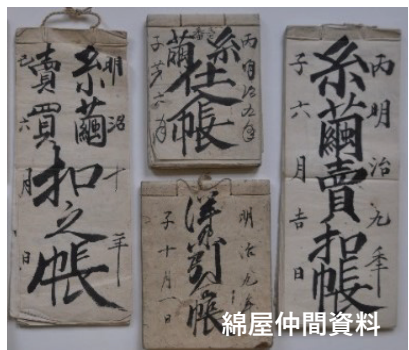 明治十年
糸繭
賣買
扣之帳
六月日
丙明治九年
糸繭
仕帳
子六月
明治九年
引帳
子十月一日
丙明治九年
糸繭賣扣帳
子六月吉日
綿屋仲間資料